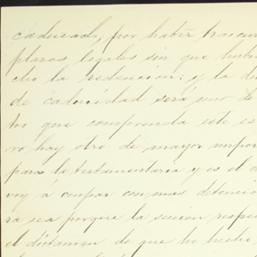 caducado, por haber transcur
plazos legales sin que hubie
cho la redencion; y la de
de caducidad será uno de
tos que comprenda este es
no hay otro de mayor impor
para la testamentaria y es el q
voy á ocupar con mas detencio
ra sea porque la sucesion respec
el dictamen de que he hecho